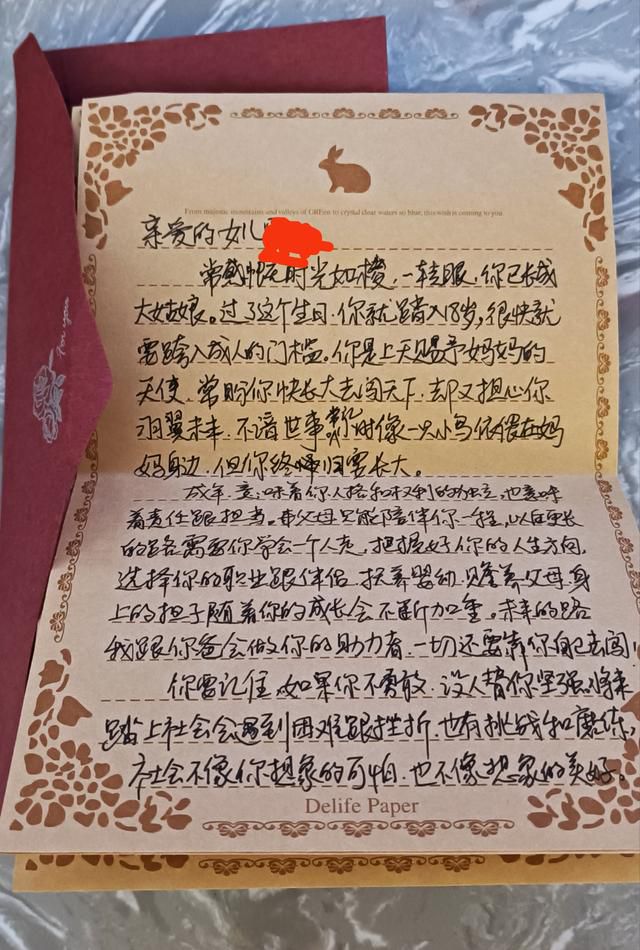 for you
From majestic mountains and valleys of GREen to crystal clear waters so blue, this wish is coming to you
亲爱的女儿
常感慨时光如梭,一转眼,你已长成
大姑娘。过了这个生日,你就踏入18岁,很快就
要跨入成人的门槛。你是上天赐予妈妈的
天使,常盼你快长大去闯天下,却又担心你
羽翼未丰,不谙世事,你时像一只小鸟依偎在妈
妈身边,但你终归要长大。
成年,意味着你人格和权利的独立,也意味
着责任跟担当。父母只能陪伴你一程,以后更长
的路需要你学会一个人走,把握好你的人生方向,
选择你的职业跟伴侣,扶养婴幼,赡养父母,身
上的担子随着你的成长会不断加重。未来的路
我跟你爸会做你的助力者,一切还要靠你自己去闯,
你要记住,如果你不勇敢,没人替你坚强,将来
踏上社会会遇到困难跟挫折,也有挑战和磨练,
社会不像你想象的可怕,也不像想象的美好。
Delife Paper